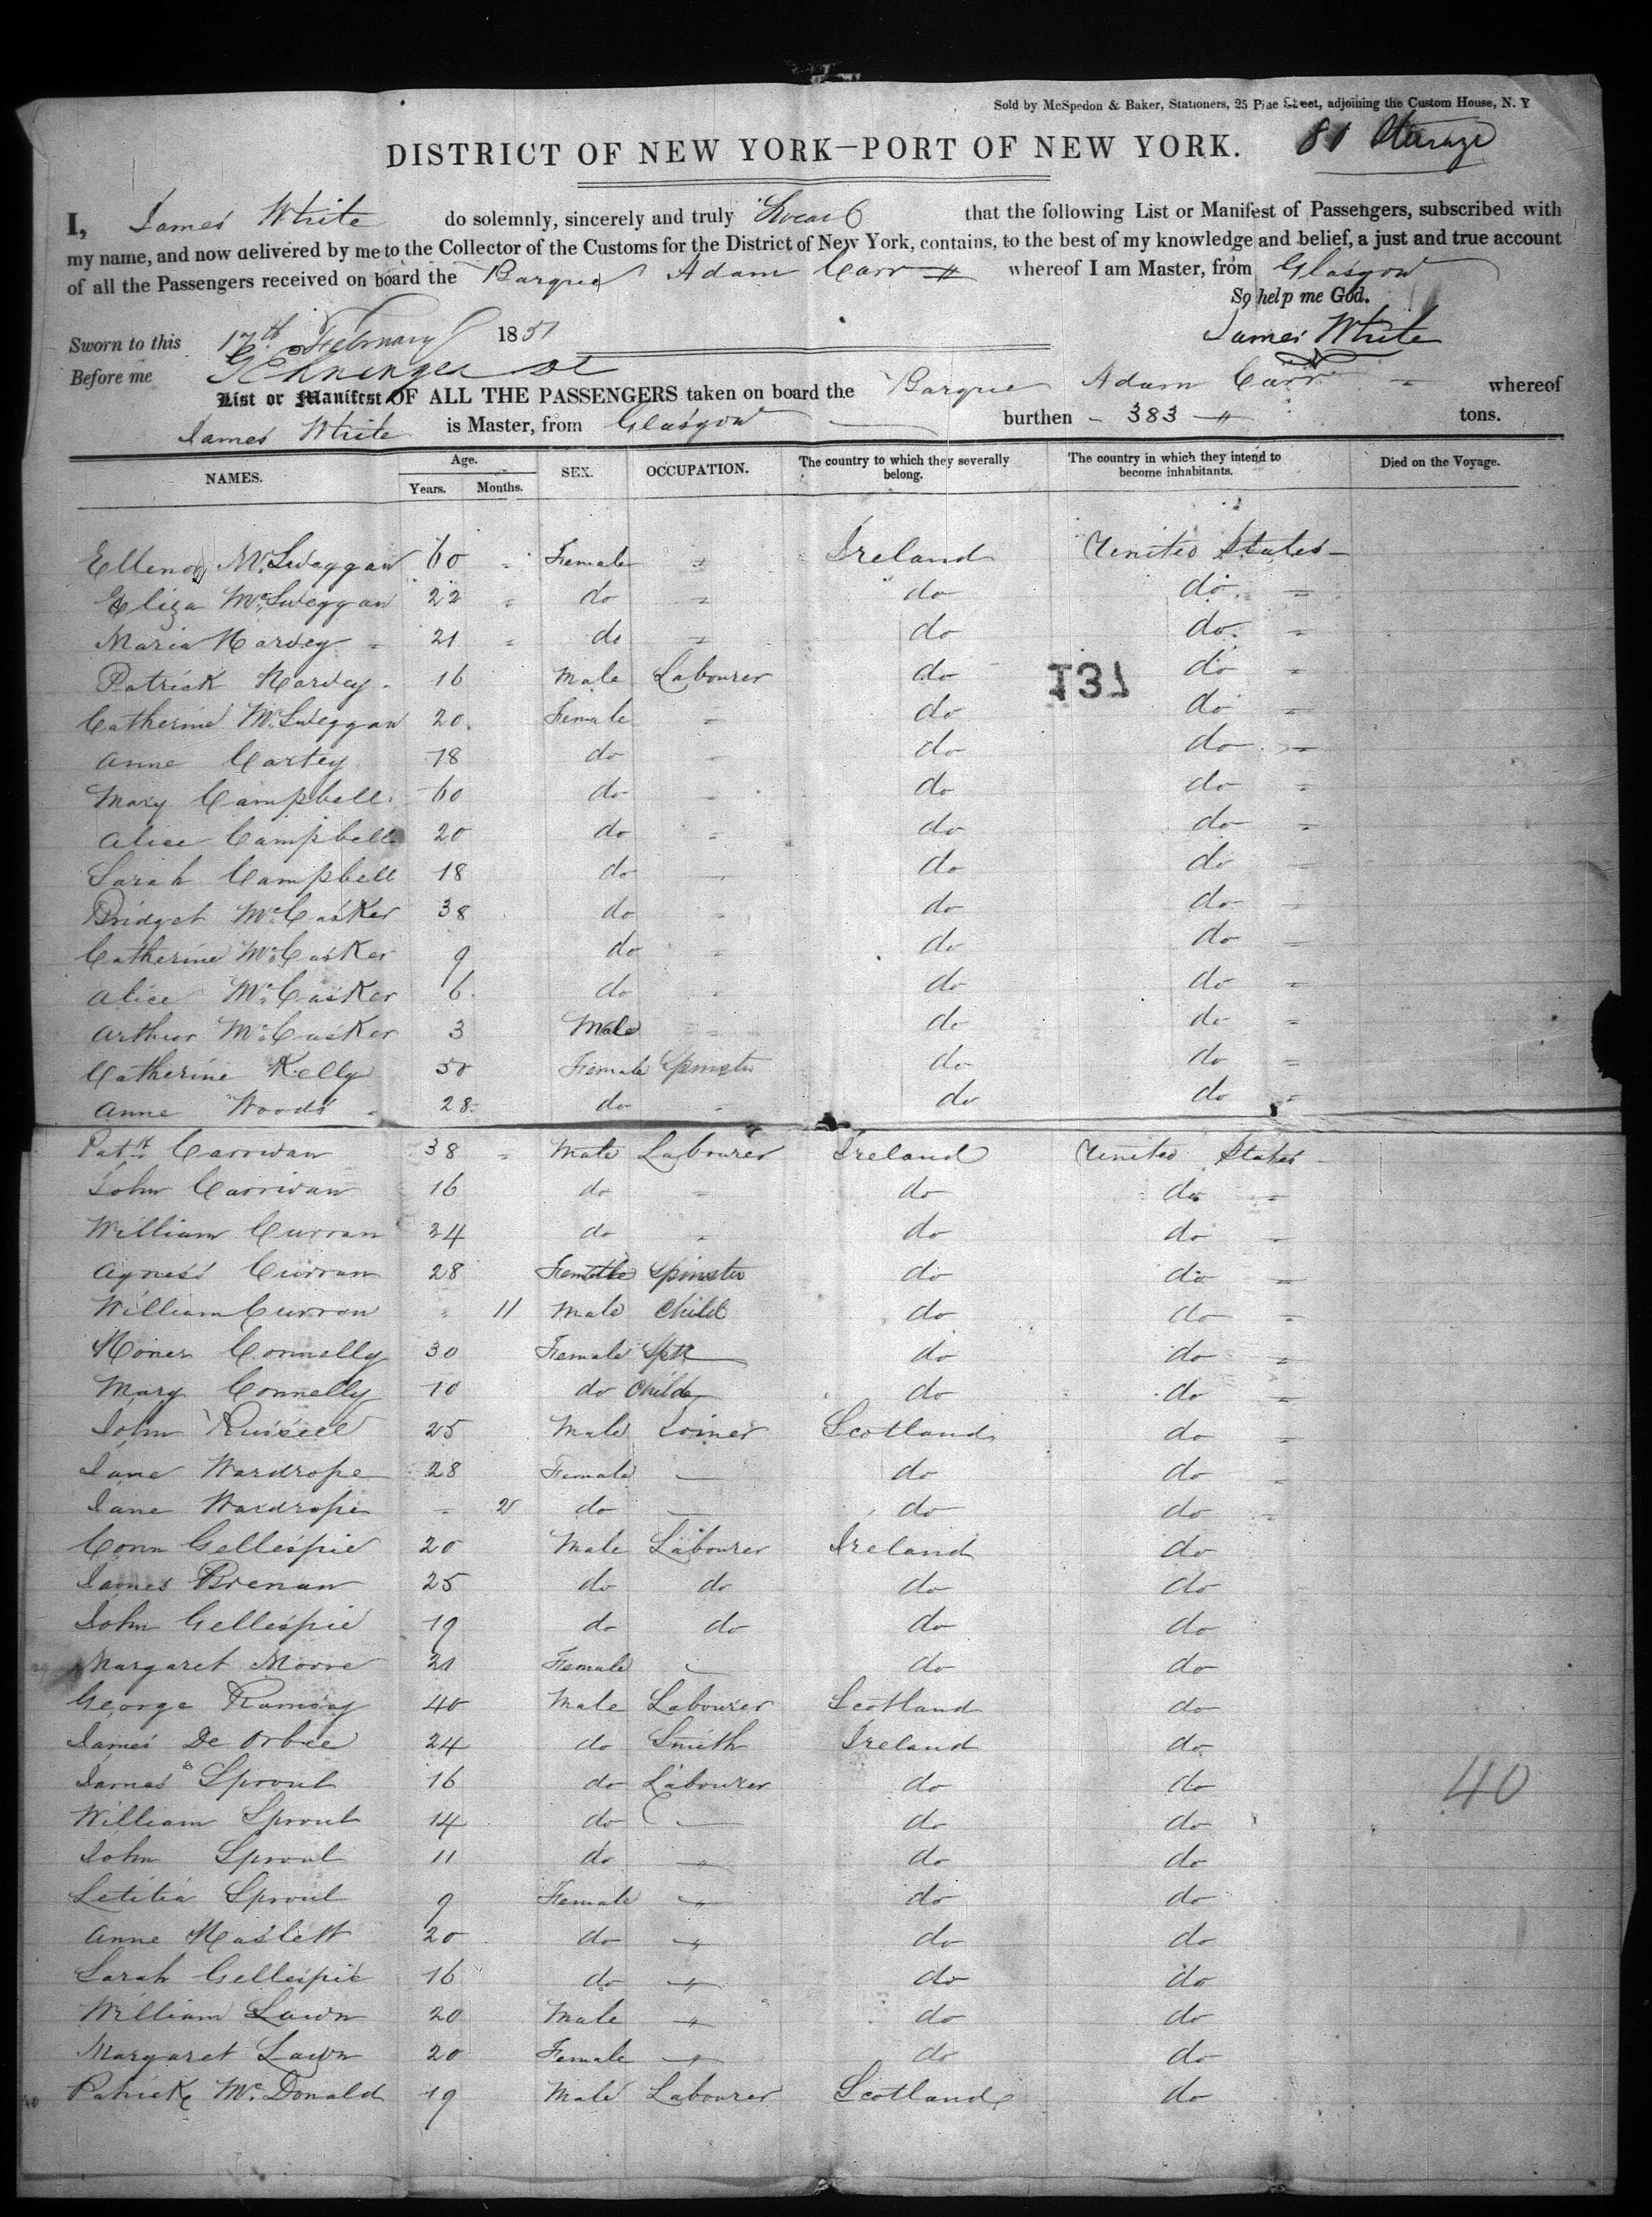 Sold by McSpedon & Baker, Stationers, 25 Pine Street, adjoining the Custom House, N. Y
DISTRICT OF NEW YORK—PORT OF NEW YORK. 81 Steerage
I, James White do solemnly, sincerely and truly Swear that the following List or Manifest of Passengers, subscribed with
my name, and now delivered by me to the Collector of the Customs for the District of New York, contains, to the best of my knowledge and belief, a just and true account
of all the Passengers received on board the Barque Adam Carr whereof I am Master, from Glasgow
So help me God.
Sworn to this 17th February 1851 James White
Before me
List or Manifest OF ALL THE PASSENGERS taken on board the Barque Adam Carr whereof
James White is Master, from Glasgow burthen - 383 - tons.
NAMES. Age. Years. Months. SEX. OCCUPATION. The country to which they severally belong. The country in which they intend to become inhabitants. Died on the Voyage.
Ellenor McSweggan 60 Female Ireland United States
Eliza McSweggan 22 do do do
Maria Harvey 21 do do do
Patrick Harvey 16 Male Labourer do 137 do
Catherine McSweggan 20 Female do do
Anne Cartey 18 do do do
Mary Campbell 60 do do do
Alice Campbell 20 do do do
Sarah Campbell 18 do do do
Bridget McCasker 38 do do do
Catherine McCasker 9 do do do
Alice McCasker 6 do do do
Arthur McCasker 3 Male do do
Catherine Kelly 50 Female Spinster do do
Anne Woods 28 do do do
Patk Carrivan 38 Male Labourer Ireland United States
John Carrivan 16 do do do
William Curran 34 do do do
Agness Curran 28 Female Spinster do do
William Curran 11 Male Child do do
Honer Connelly 30 Female Spr do do
Mary Connelly 10 do Child do do
John Russell 25 Male Joiner Scotland do
Jane Wardrope 28 Female do do
Jane Wardrope 2 do do do
Conn Gellespie 20 Male Labourer Ireland do
James Brenan 25 do do do do
John Gellespie 19 do do do do
Margaret Moore 21 Female do do
George Ramsay 40 Male Labourer Scotland do
James De Orbee 24 do Smith Ireland do
James Sproul 16 do Labourer do do 40
William Sproul 14 do do do
John Sproul 11 do do do
Letitia Sproul 9 Female do do
Anne Haslett 20 do do do
Sarah Gellespie 16 do do do
William Lawn 20 Male do do
Margaret Lawn 20 Female do do
Patrick McDonald 19 Male Labourer Scotland do